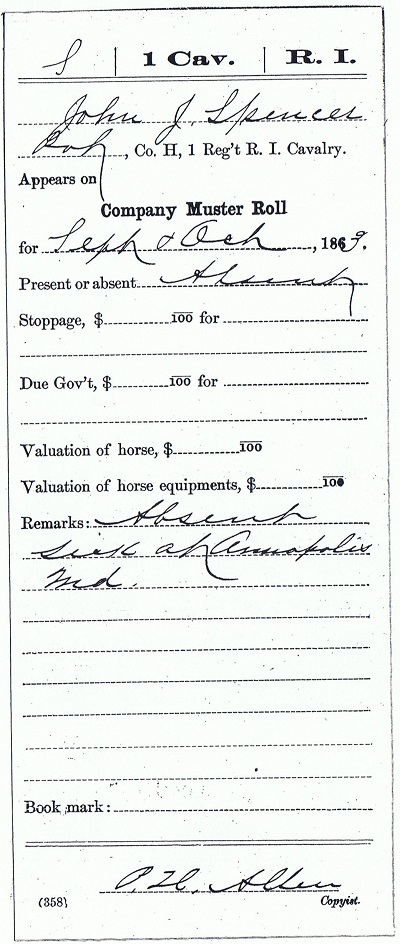 S | 1 Cav. | R. I.
John J. Spencer
Pvt, Co. H, 1 Reg't R. I. Cavalry.
Appears on
Company Muster Roll
for Sept & Oct, 1863.
Present or absent Absent
Stoppage, $ 100 for
Due Gov't, $ 100 for
Valuation of horse, $ 100
Valuation of horse equipments, $ 100
Remarks: Absent
sick at Annapolis
Md.
Book mark:
P. H. Allen
(358) Copyist.